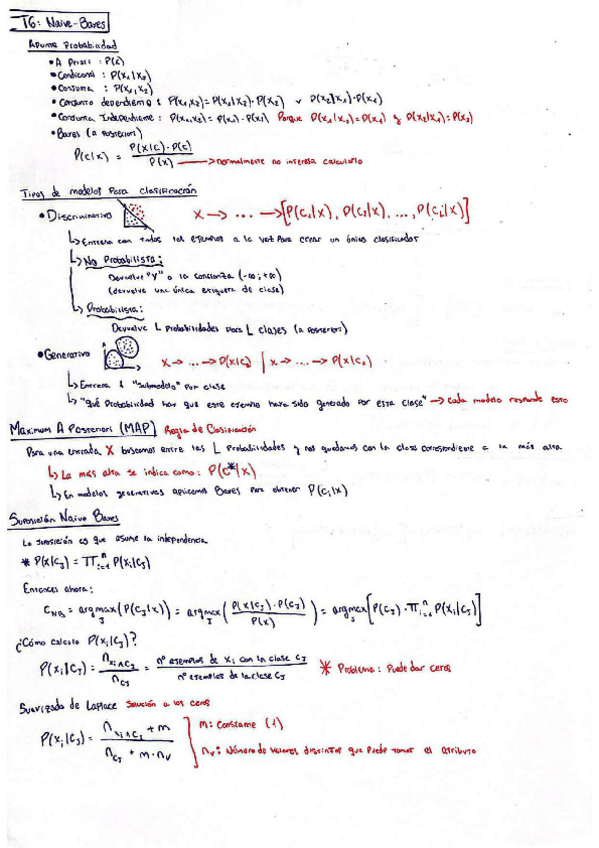 T6: Naive-Bayes
Apunte Probabilidad
• A Priori : P(c)
• Condicional : P(x₁|x₂)
• Conjunta : P(x₁,x₂)
• Conjunta dependiente : P(x₁,x₂)=P(x₁|x₂)·P(x₂) y P(x₂|x₁)·P(x₁)
• Conjunta Independiente : P(x₁,x₂) = P(x₁)·P(x₂) Porque P(x₁|x₂)=P(x₁) y P(x₂|x₁)=P(x₂)
• Bayes (a posteriori)
P(c|x) = P(x|c)·P(c) / P(x) → normalmente no interesa calcularlo
Tipos de modelos para clasificación
• Discriminativo x → ... → [P(c₁|x), P(c₂|x), ..., P(cⱼ|x)]
↳ Entrena con todos los ejemplos a la vez para crear un único clasificador
↳ No Probabilista:
Devuelve "Y" o la confianza (-∞,+∞)
(devuelve una única etiqueta de clase)
↳ Probabilista:
Devuelve L probabilidades para L clases (a posteriori)
• Generativo x → ... → P(x|c₁) | x → ... → P(x|c₂)
↳ Entrena 1 "submodelo" por clase
↳ "qué probabilidad hay que este ejemplo haya sido generado por esta clase" → cada modelo responde esto
Maximum A Posteriori (MAP) Regla de Clasificación
Para una entrada X buscamos entre las L probabilidades y nos quedamos con la clase correspondiente a la más alta
↳ La más alta se indica como: P(c*|x)
↳ En modelos generativos aplicamos Bayes para obtener P(cᵢ|x)
Suposición Naive Bayes
La suposición es que asume la independencia
* P(x|cⱼ) = ∏ᵢ₌₁ⁿ P(xᵢ|cⱼ)
Entonces ahora:
C_NB = argmax_j (P(cⱼ|x)) = argmax_j (P(x|cⱼ)·P(cⱼ) / P(x)) = argmax_j [P(cⱼ)·∏ᵢ₌₁ⁿ P(xᵢ|cⱼ)]
¿Cómo calculo P(xᵢ|cⱼ)?
P(xᵢ|cⱼ) = n_xᵢ∧cⱼ / n_cⱼ = nº ejemplos de xᵢ con la clase cⱼ / nº ejemplos de la clase cⱼ * Problema: Puede dar ceros
Suavizado de Laplace Solución a los ceros
P(xᵢ|cⱼ) = n_xᵢ∧cⱼ + m / n_cⱼ + m·n_v
m: Constante (1)
n_v: Número de valores distintos que puede tomar el atributo